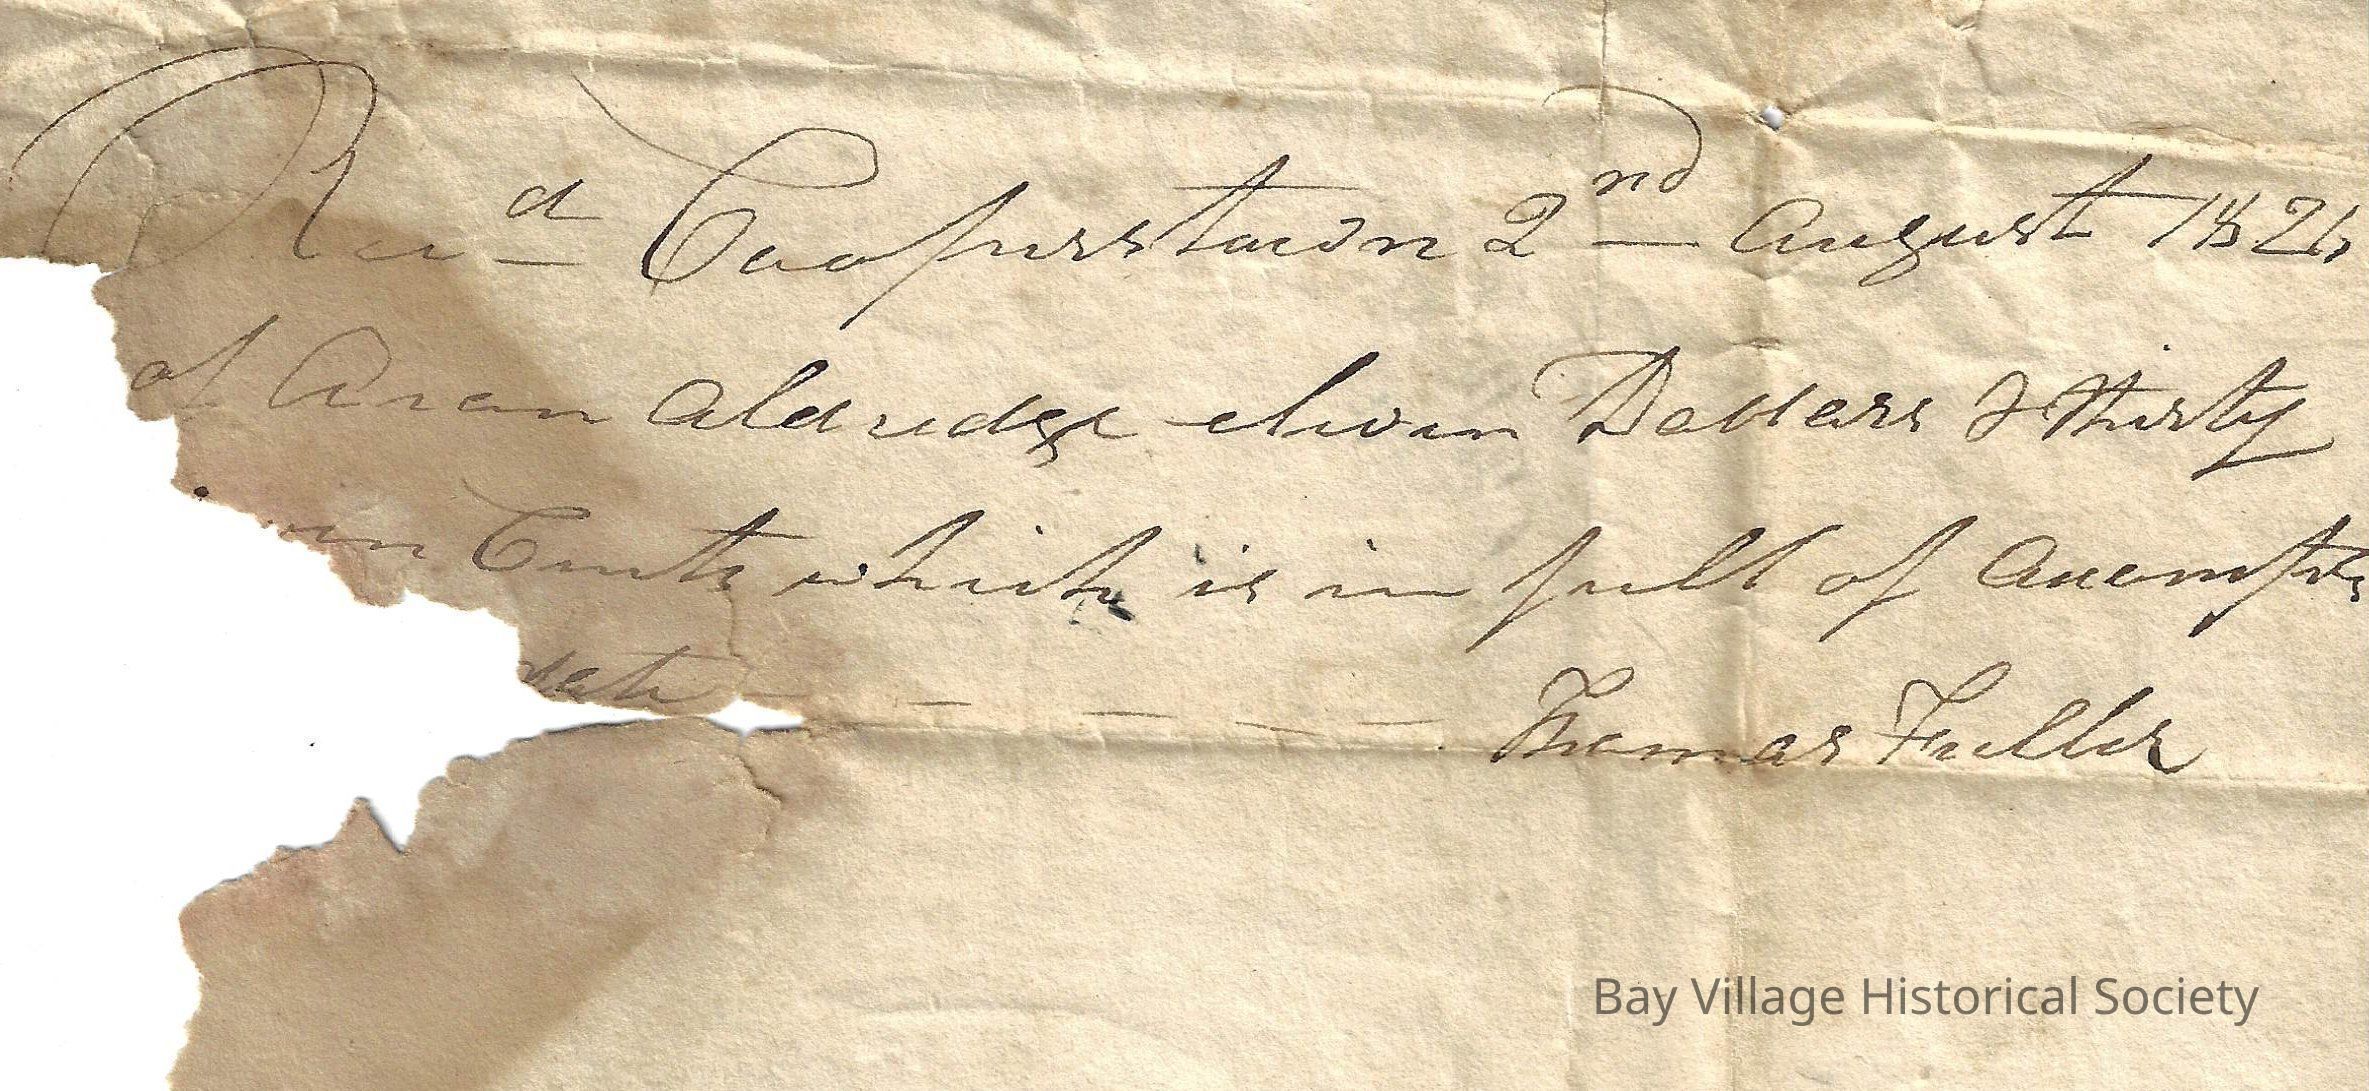 Recd Cooperstown 2nd August 1821
of Aran Aldridge eleven Dollars & thirty
Cents which is in full of Accompts
date
Thomas Fuller
Bay Village Historical Society